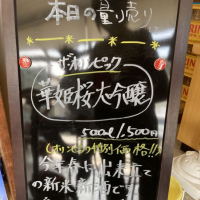 本日の量り売り
オリンピック
華姫桜大吟醸
500ml 1,500円
(オリンピック特別価格!!)
今年度上出来立て
の新米新酒です